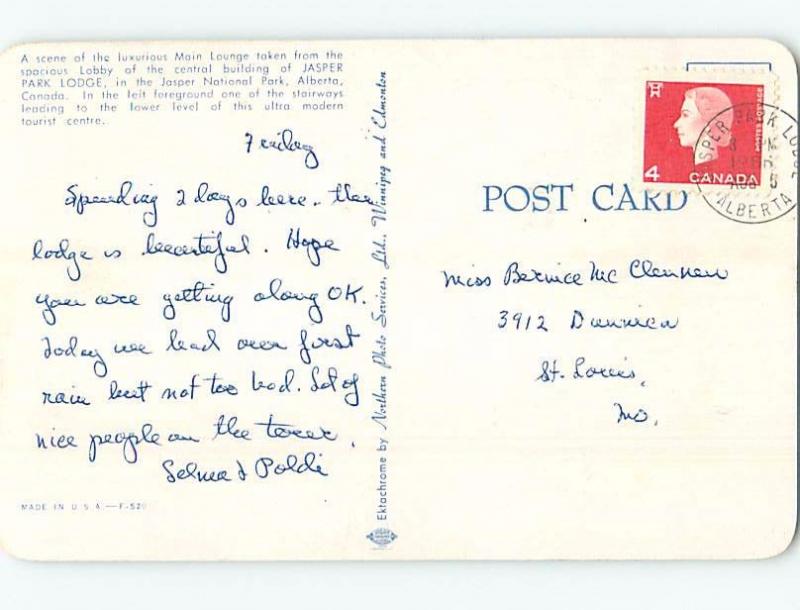 A scene of the luxurious Main Lounge taken from the
spacious Lobby of the central building of JASPER
PARK LODGE, in the Jasper National Park, Alberta,
Canada. In the left foreground one of the stairways
leading to the lower level of this ultra modern
tourist centre.
Friday
Spending 2 days here. The
lodge is beautiful. Hope
you are getting along OK.
Today we had our first
rain but not too bad. Lot of
nice people on the tour.
Selma & Poldi
MADE IN U S A—F-520
Ektachrome by Northern Photo Services, Ltd., Winnipeg and Edmonton
POST CARD
4
CANADA
POSTES POSTAGE
JASPER PARK LODGE
PM
AUG 5
ALBERTA
Miss Bernice Mc Clennen
3912 Dunnica
St. Louis,
Mo.